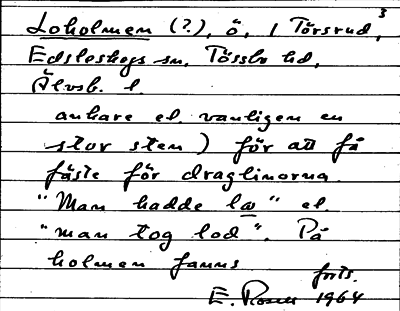 Loholmen (?), ö, i Törsrud, 3
Edsleskogs sn, Tössbo hd,
Älvsb. l.
ankare el. vanligen en
stor sten) för att få
fäste för draglinorna.
"Man hadde lo" el.
"man tog lod". På
holmen fanns
forts.
E. Rosell 1964